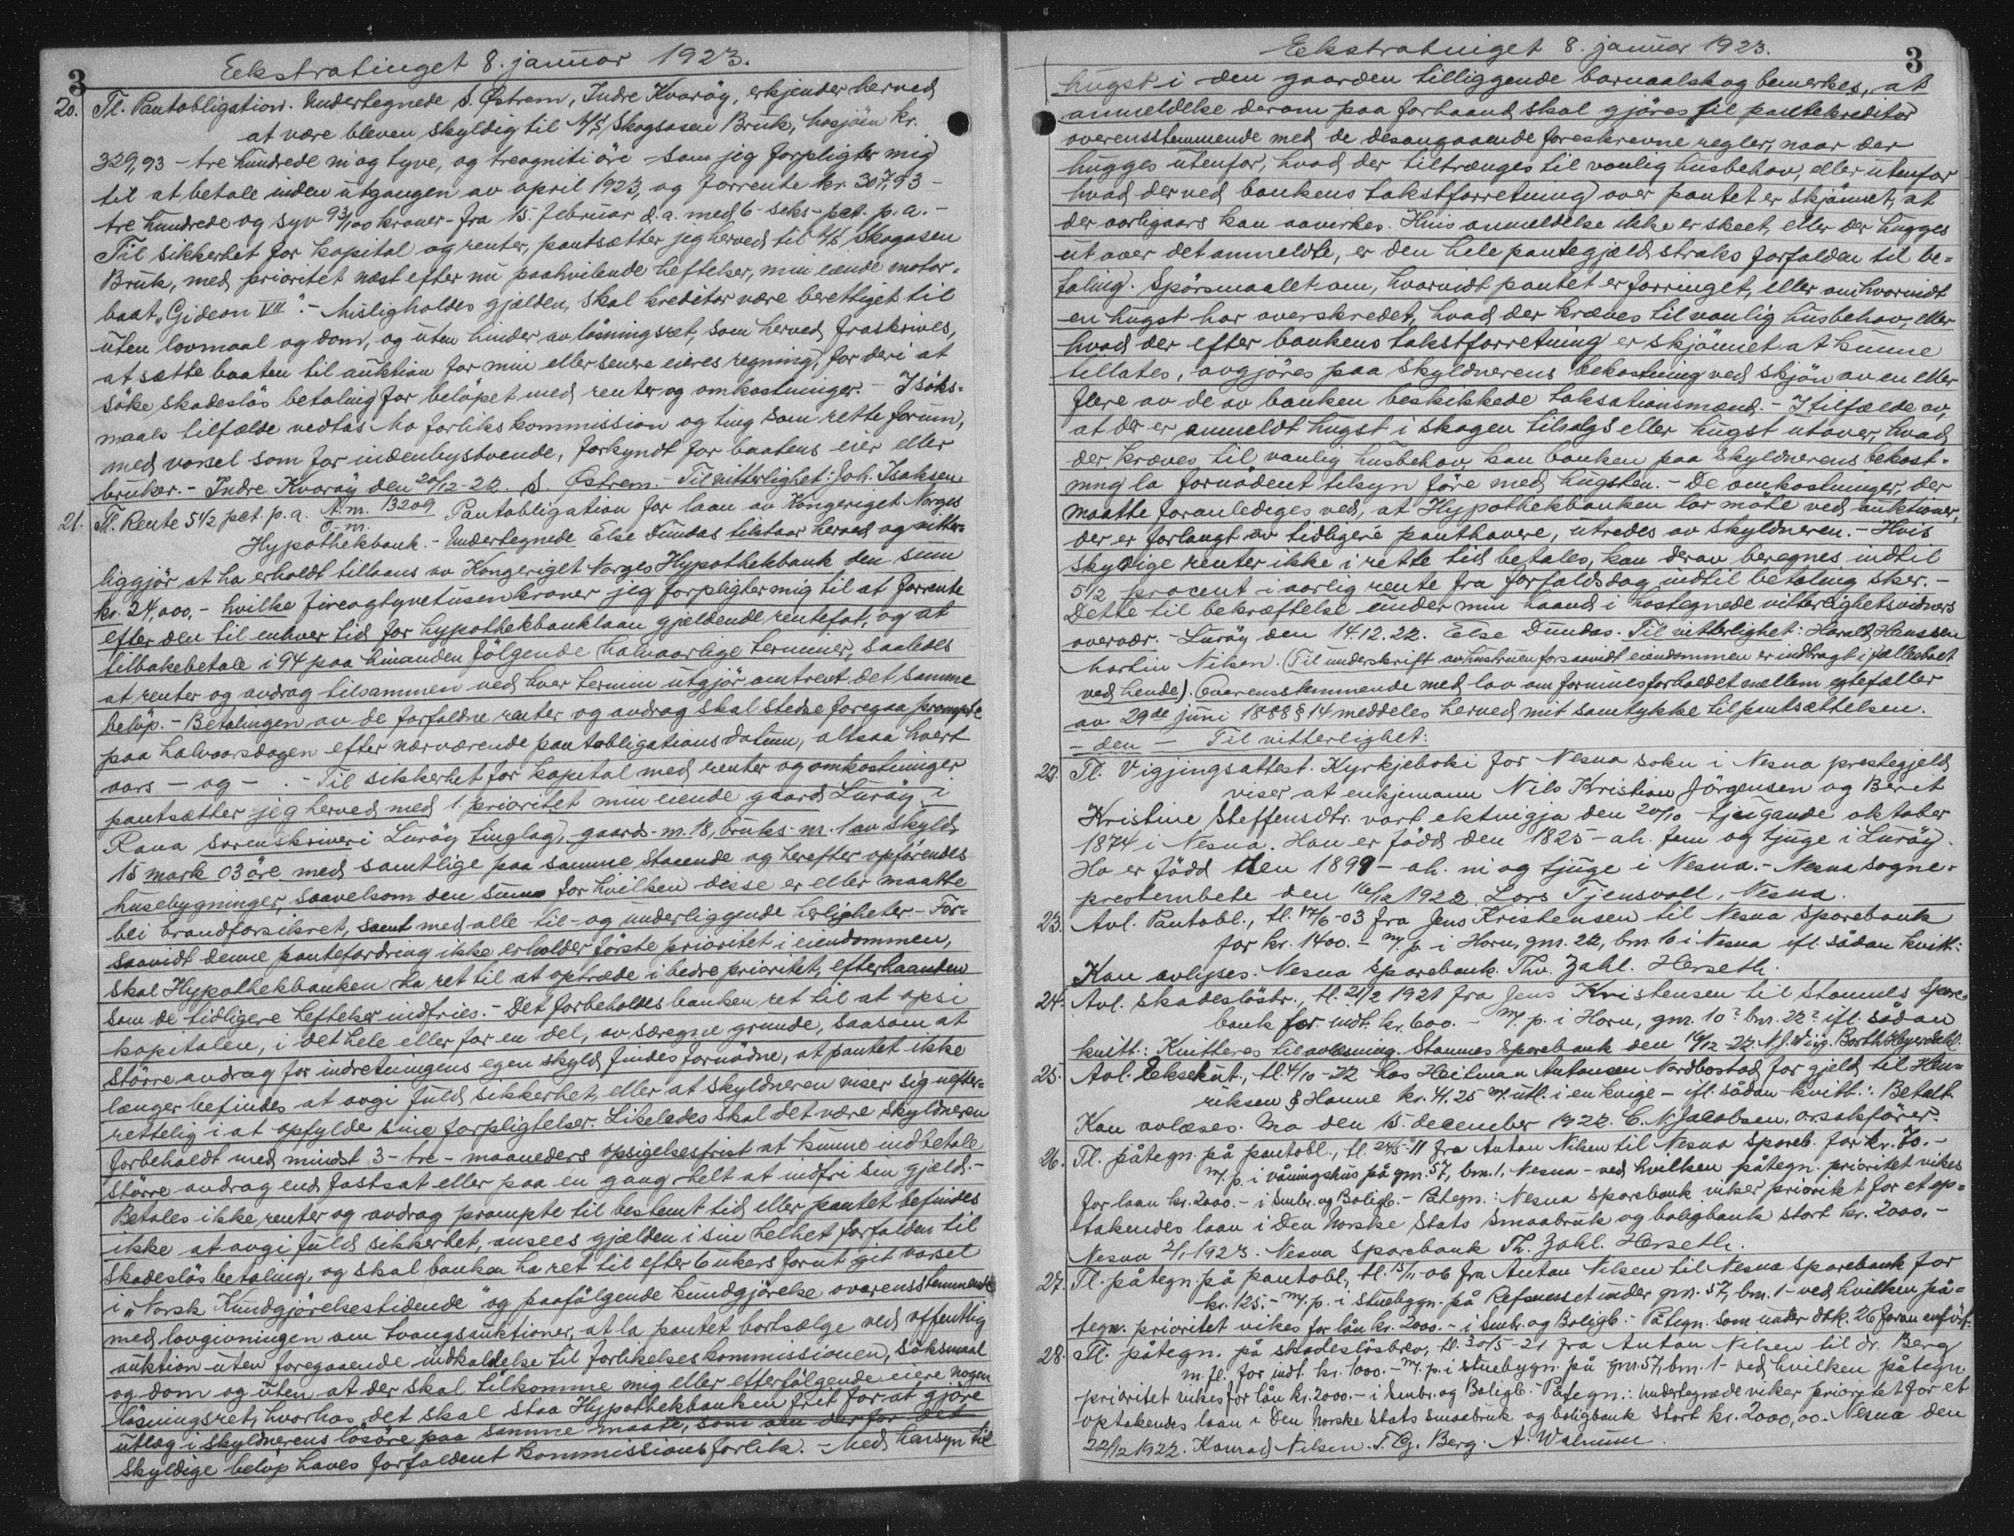 3
Ekstratinget 8. januar 1923.
20. Tl. Pantobligation. Undertegnede S. Østrem, Indre Kvarøy, erkjender herved
at være bleven skyldig til A/S Skogsosen Bruk, hosjöen kr.
329,93 - tre hundrede ni og tyve, og treogniti öre - som jeg forpligter mig
til at betale inden utgangen av april 1923, og forrente kr. 307,93 -
tre hundrede og syv 93/100 kroner - fra 15. februar d.a. med 6 - seks - pct. p.a. -
Til sikkerhet for kapital og renter, pantsætter jeg herved til A/S Skogosen
Bruk, med prioritet næst efter nu paahvilende heftelser, min eiende motor-
baat "Gideon VII". - Misligholdes gjælden, skal kreditor være berettiget til
uten lovmaal og dom, og uten hinder av løsningsret, som herved fraskrives,
at sætte baaten til auktion for min eller senere eieres regning, for deri at
søke skadesløs betaling for beløpet med renter og omkostninger. - I søks-
maals tilfælde vedtas Mo forlikskommission og ting som rette forum,
med varsel som for indenbysboende, forkyndt for baatens eier eller
bruker. - Indre Kvarøy den 20/12-22. S. Østrem. - Til vitterlighet: Joh. Isaksen.
21. Tl. Rente 5 1/2 pct. p.a. A.m. 13209 Pantobligation for laan av Kongeriget Norges
O-m.
Hypothekbank. - Undertegnede Else Dundas tilstaar herved og vitter-
liggjör at ha erholdt tillaans av Kongeriget Norges Hypothekbank den sum
kr. 24,000,- hvilke fireogtyvetusen kroner jeg forpligter mig til at forrente
efter den til enhver tid for hypothekbanklaan gjældende rentefot, og at
tilbakebetale i 94 paa hinanden følgende halvaarlige terminer, saaledes
at renter og avdrag tilsammen ved hver termin utgjør omtrent det samme
beløp. - Betalingen av de forfaldne renter og avdrag skal stedse foregaa prompte
paa halvaarsdagen efter nærværende pantobligations datum, altsaa hvert
aars - og - . - Til sikkerhet for kapital med renter og omkostninger
pantsætter jeg herved med 1. prioritet min eiende gaard Lurøy i
Rana sorenskriveri Lurøy tinglag, gaards-nr. 18, bruks-nr. 1 av skyld
15 mark 03 öre med samtlige paa samme staaende og herefter opførendes
husebygninger, saavelsom den sum for hvilken disse er eller maatte
bli brandforsikret, samt med alle til- og underliggende herligheter. - For-
saavidt denne pantefordring ikke erholder förste prioritet i eiendommen,
skal Hypothekbanken ha ret til at optræde i bedre prioritet, efterhaanden
som de tidligere heftelser indfries. - Det forbeholdes banken ret til at opsi
kapitalen, i det hele eller for en del, av særegne grunde, saasom at
större avdrag for indretningens egen skyld findes fornødne, at pantet ikke
længer befindes at avgi fuld sikkerhet, eller at skyldneren viser sig uefter-
rettelig i at opfylde sine forpligtelser. Likeledes skal det være skyldneren
forbeholdt med mindst 3 - tre - maaneders opsigelsesfrist at kunne indbetale
större avdrag end fastsat eller paa en gang helt at indfri sin gjæld. -
Betales ikke renter og avdrag prompte til bestemt tid, eller pantet befindes
ikke at avgi fuld sikkerhet, ansees gjælden i sin helhet forfalden til
skadesløs betaling, og skal banken ha ret til efter 6 ukers forut git varsel
i "Norsk Kundgjørelsestidende" og paafølgende kundgjørelse overensstemmende
med lovgivningen om tvangsauktioner, at la pantet bortsælge ved offentlig
auktion uten foregaaende indkaldelse til forlikelseskommissionen, søksmaal
og dom og uten at der skal tilkomme mig eller efterfølgende eiere nogen
løsningsret, hvorhos det skal staa Hypothekbanken frit for at gjøre
utlæg i skyldnerens løsøre paa samme maate, som om der for det
skyldige beløp haves forfaldent kommissionsforlik. - Med hensyn til
3
Ekstratinget 8. januar 1923.
hugst i den gaarden tilliggende barnaalskog bemerkes, at
anmeldelse derom paa forhaand skal gjøres til pantekreditor
overensstemmende med de desangaaende foreskrevne regler, naar der
hugges utenfor, hvad der tiltrænges til vanlig husbehov, eller utenfor
hvad der ved bankens takstforretning over pantet er skjønnet, at
der aarligaars kan avverkes. Hvis anmeldelse ikke er skeet, eller der hugges
ut over det anmeldte, er den hele pantegjæld straks forfalden til be-
taling. Spørsmaalet om, hvorvidt pantet er forringet, eller om hvorvidt
en hugst har overskredet, hvad der kræves til vanlig husbehov, eller
hvad der efter bankens takstforretning er skjønnet at kunne
tillates, avgjøres paa skyldnerens bekostning ved skjøn av en eller
flere av de av banken beskikkede taksationsmænd. - I tilfælde av,
at der er anmeldt hugst i skogen tilsalgs eller hugst utover, hvad
der kræves til vanlig husbehov, kan banken paa skyldnerens bekost-
ning la fornødent tilsyn føre med hugsten. - De omkostninger, der
maatte foranlediges ved, at Hypothekbanken lar møte ved auktioner,
der er forlangt av tidligere panthavere, utredes av skyldneren. - Hvis
skyldige renter ikke i rette tid betales, kan derav beregnes indtil
5 1/2 procent i aarlig rente fra forfaldsdag indtil betaling sker. -
Dette til bekræftelse under min haand i hostegnede vitterlighetsvidners
overvær. - Lurøy den 14.12.22. Else Dundas. Til vitterlighet: Harald Hanssen
Martin Nilsen. (Til underskrift av hustruen forsaavidt eiendommen er indbragt i fællesboet
ved hende). Overensstemmende med lov om formuesforholdet mellem egtefæller
av 29de juni 1888 § 14 meddeles herved mit samtykke til pantsættelsen.
- den - Til vitterlighet:
22. Tl. Vigjingsattest. Kyrkjeboki for Nesna sokn i Nesna prestegjeld
viser at enkjemann Nils Kristian Jörgensen og Berit
Kristine Steffensdtr. vart ektevigja den 20/10 - tjugande oktober
1874 i Nesna. Han er född den 1825 - ah. fem og tjuge i Lurøy.
Ho er född den 1899 - ah. ni og tjuge i Nesna. - Nesna sogne-
prestembete den 16/12 1922. Lars Tjensvoll, Nesna.
23. Avl. Pantobl., tl. 17/6-03 fra Jens Kristensen til Nesna Sparebank
for kr. 1400.- m/p. i Horn, gnr. 22, bnr. 10 i Nesna ifl. sådan kvitt.:
Kan avlyses. Nesna Sparebank. Thv. Zahl. Herseth.
24. Avl. skadeslösbr., tl. 21/2 1921 fra Jens Kristensen til Stamnes Spare-
bank for indt. kr. 600.- m/p. i Horn, gnr. 10? bnr. 22? ifl. sådan
kvitt.: Kvitteres til avlesning. Stamnes Sparebank den 16/12-22 N.J. Wiig. Barth Heyerdahl.
25. Avl. Eksekut., tl. 4/10-22 hos Heitman Antonsen Nordbostad for gjeld til Hen-
riksen & Hanne kr. 41.25 m/utl. i en kvige - ifl. sådan kvitt.: Betalt.
Kan avlæses. Mo den 15. december 1922. C.N. Jacobsen, o.r.sakförer.
26. Tl. påtegn. på pantobl., tl. 24/5-11 fra Anton Nilsen til Nesna Spareb. for kr. 70.-
m/p. i våningshus på gnr. 57, bnr. 1, Nesna - ved hvilken påtegn. prioritet vikes
for laan kr. 2000.- i Smbr. og Boligb. - Påtegn.: Nesna Sparebank viker prioritet for et op-
takendes laan i Den Norske Stats Smaabruk og boligbank stort kr. 2000.-
Nesna 2/1 1923. Nesna Sparebank Th. Zahl. Herseth.
27. Tl. påtegn. på pantobl., tl. 15/11-06 fra Anton Nilsen til Nesna Sparebank for
kr. 125.- m/p. i stuebygn. på Refsneset under gnr. 57, bnr. 1 - ved hvilken på-
tegn. prioritet vikes for lån kr. 2000.- i Smbr. og Boligb. - Påtegn. som under dok. 26 foran anfört.
28. Tl. påtegn. på skadeslösbrev, tl. 30/5-21 fra Anton Nilsen til dr. Berg
m. fl. for indt. kr. 1000.- m/p. i stuebygn. på gnr. 57, bnr. 1 - ved hvilken påtegn.
prioritet vikes for lån kr. 2000.- i Smbr. og Boligb. - Påtegn.: Undertegnede viker prioritet for et
optakendes laan i Den Norske Stats Smaabruk og boligbank stort kr. 2000,00. Nesna den
22/12 1922. Konrad Nilsen. F.G. Berg. A. Walnum.